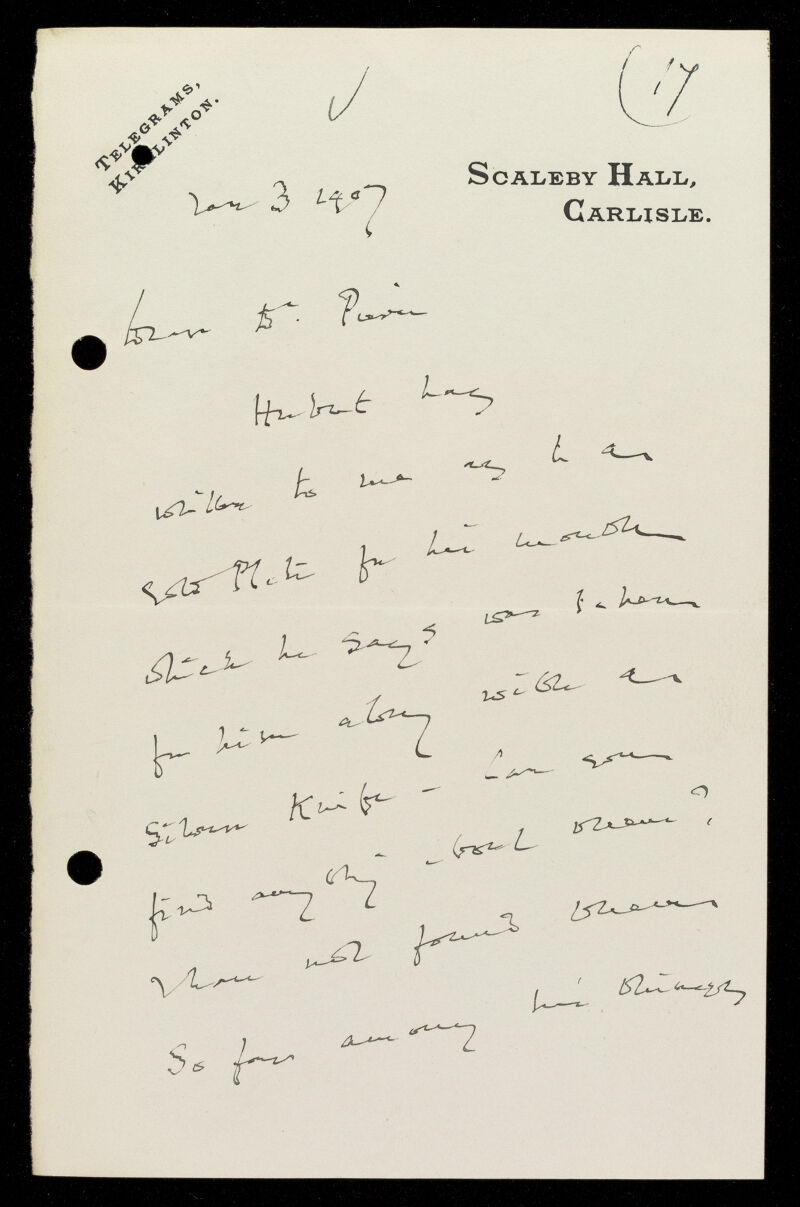 (17
TELEGRAMS,
KIRKLINTON.
SCALEBY HALL,
CARLISLE.
3 1907
Dear Dr. Pierce
Herbert has
written to me as to a
gold Plate for his mouth
which he says was taken
from him along with a
Silver Knife – Can you
find anything about them?
I have not found them
So far among his things